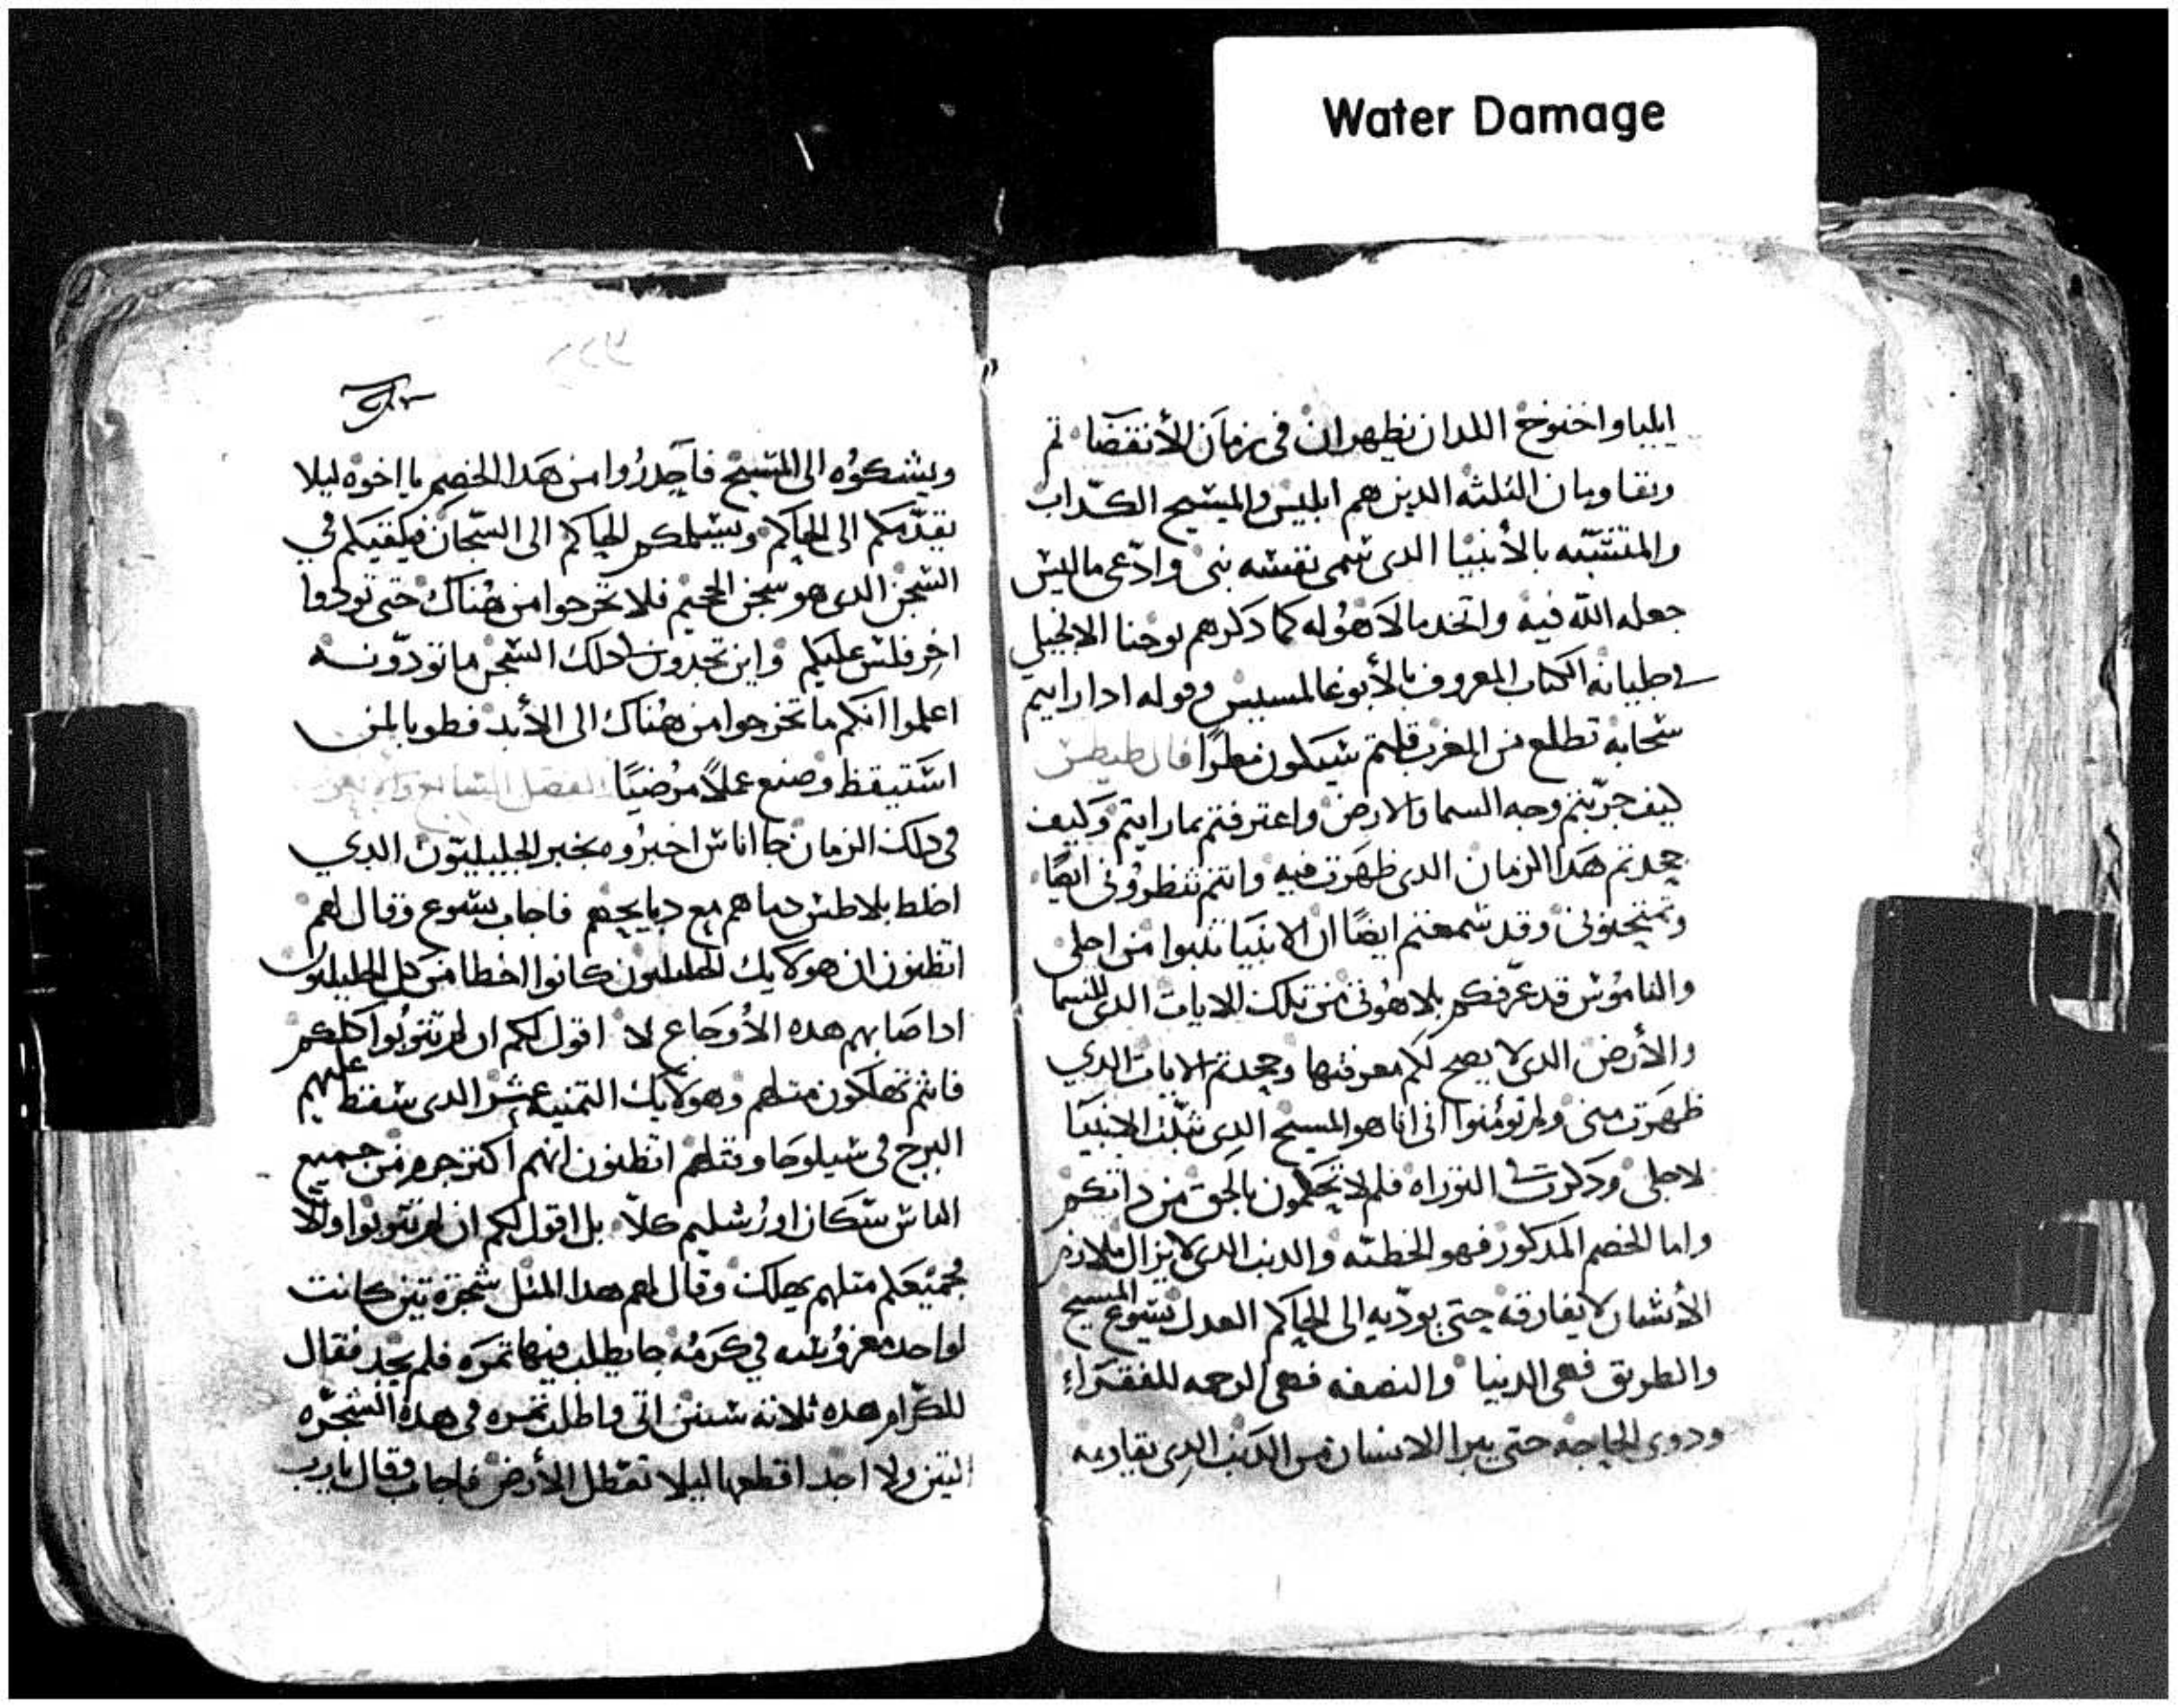 Water Damage
ايليا واخنوخ اللدان يظهران في زمان الأنقضا ثم
ويقاومان الثلثه الدين هم ابليس والمسيح الكدّاب
والمتشبّه بالأنبيا الدى سمى نفسه نبى وادّعى ماليس
جعله الله فيه واتخد مالا هوُله كما دكرهم يوحنا الانجيلي
في جليانه الكتاب المعروف بالأبوغالمسيس وقوله ادا رايتم
سحابه تطلع من المغرب قلتم سيكون مطرًا قال طيطس
كيف جرّبتم وجه السما والارض واعترفتم بمارايتم وكيف
جحدتم هدا الزمان الدى ظهرت فيه وانتم تنظروُنى ايضًا
وتمتحنونى وقد سمعتم ايضًا ان الانبيا تنبوا من اجلى
والناموُس قد عرّفكم بلاهوُتى من تلك الايات الدى للسما
والأرض الدى لا يصح لكم معرفتها وجحدتم الايات الدي
ظهرت منى ولم تؤمنوا انى انا هو المسيح الدى الانبيا
لاجلى ودكرت فى التوراه فلم لا تحكمون بالحق من داتكم
واما الخصم المدكور فهو الخطيّه والدنب الدى لا يزال ملازم
الأنسان لا يفارقه حتى يودّيه الى الحاكم العدل يسوع المسيح
والطريق فهى الدنيا والنصفه فهى الرحمه للفقراء
ودوى الحاجه حتى يبرا الانسان من الدنب الدى يقاومه
ويشكوُه الى المسيح فاحدرُوا من هدا الخصم يا اخوه ليلا
يقدّمكم الى الحاكم ويسلمكم الحاكم الى السّجان فيلقيكم في
السّجن الدى هو سجن الجحيم فلا تخرجوا من هُناك حتى تودوا
اخر فلس عليكم واين تجدون فى دلك السّجن ما تودّونه
اعلموا انكم ما تخرجوا من هُناك الى الأبد فطوبا لمن
استيقظ وصنع عملاً مرُضيًا الفصل السابع والاربعون
فى دلك الزمان جا اناس اخبرُوه بخبر الجليليّون الدي
اخلط بلاطس دماهم مع دبايحهم فاجاب يسوع وقال لهم
اتظنون ان هولايك الجليليون كانوا اخطا من كل الجليليون
اداصابهم هده الأوجاع لا اقول لكم ان لم تتوبُوا كلكم
فانتم تهلكون مثلهم وهولايك التمنيه عشر الدى سقط عليهم
البرج فى سيلوحا وقتلهم اتظنون انهم اكتر جرم من جميع
الناس سّكان اورُشليم كلّا بل اقول لكم ان لم تتوبوا والّا
جُميعكم متلهم يهلك وقال لهم هدا المثل شجرة تين كانت
لواحد مغروُسه في كرمُه جا يطلب فيها تمره فلم يجد فقال
للكّرام هده ثلاثه سنين اتى واطلب تمره فى هدة الشجّره
التين ولا اجد اقطعها ليلا تعّطل الأرض فاجاب وقال يارب